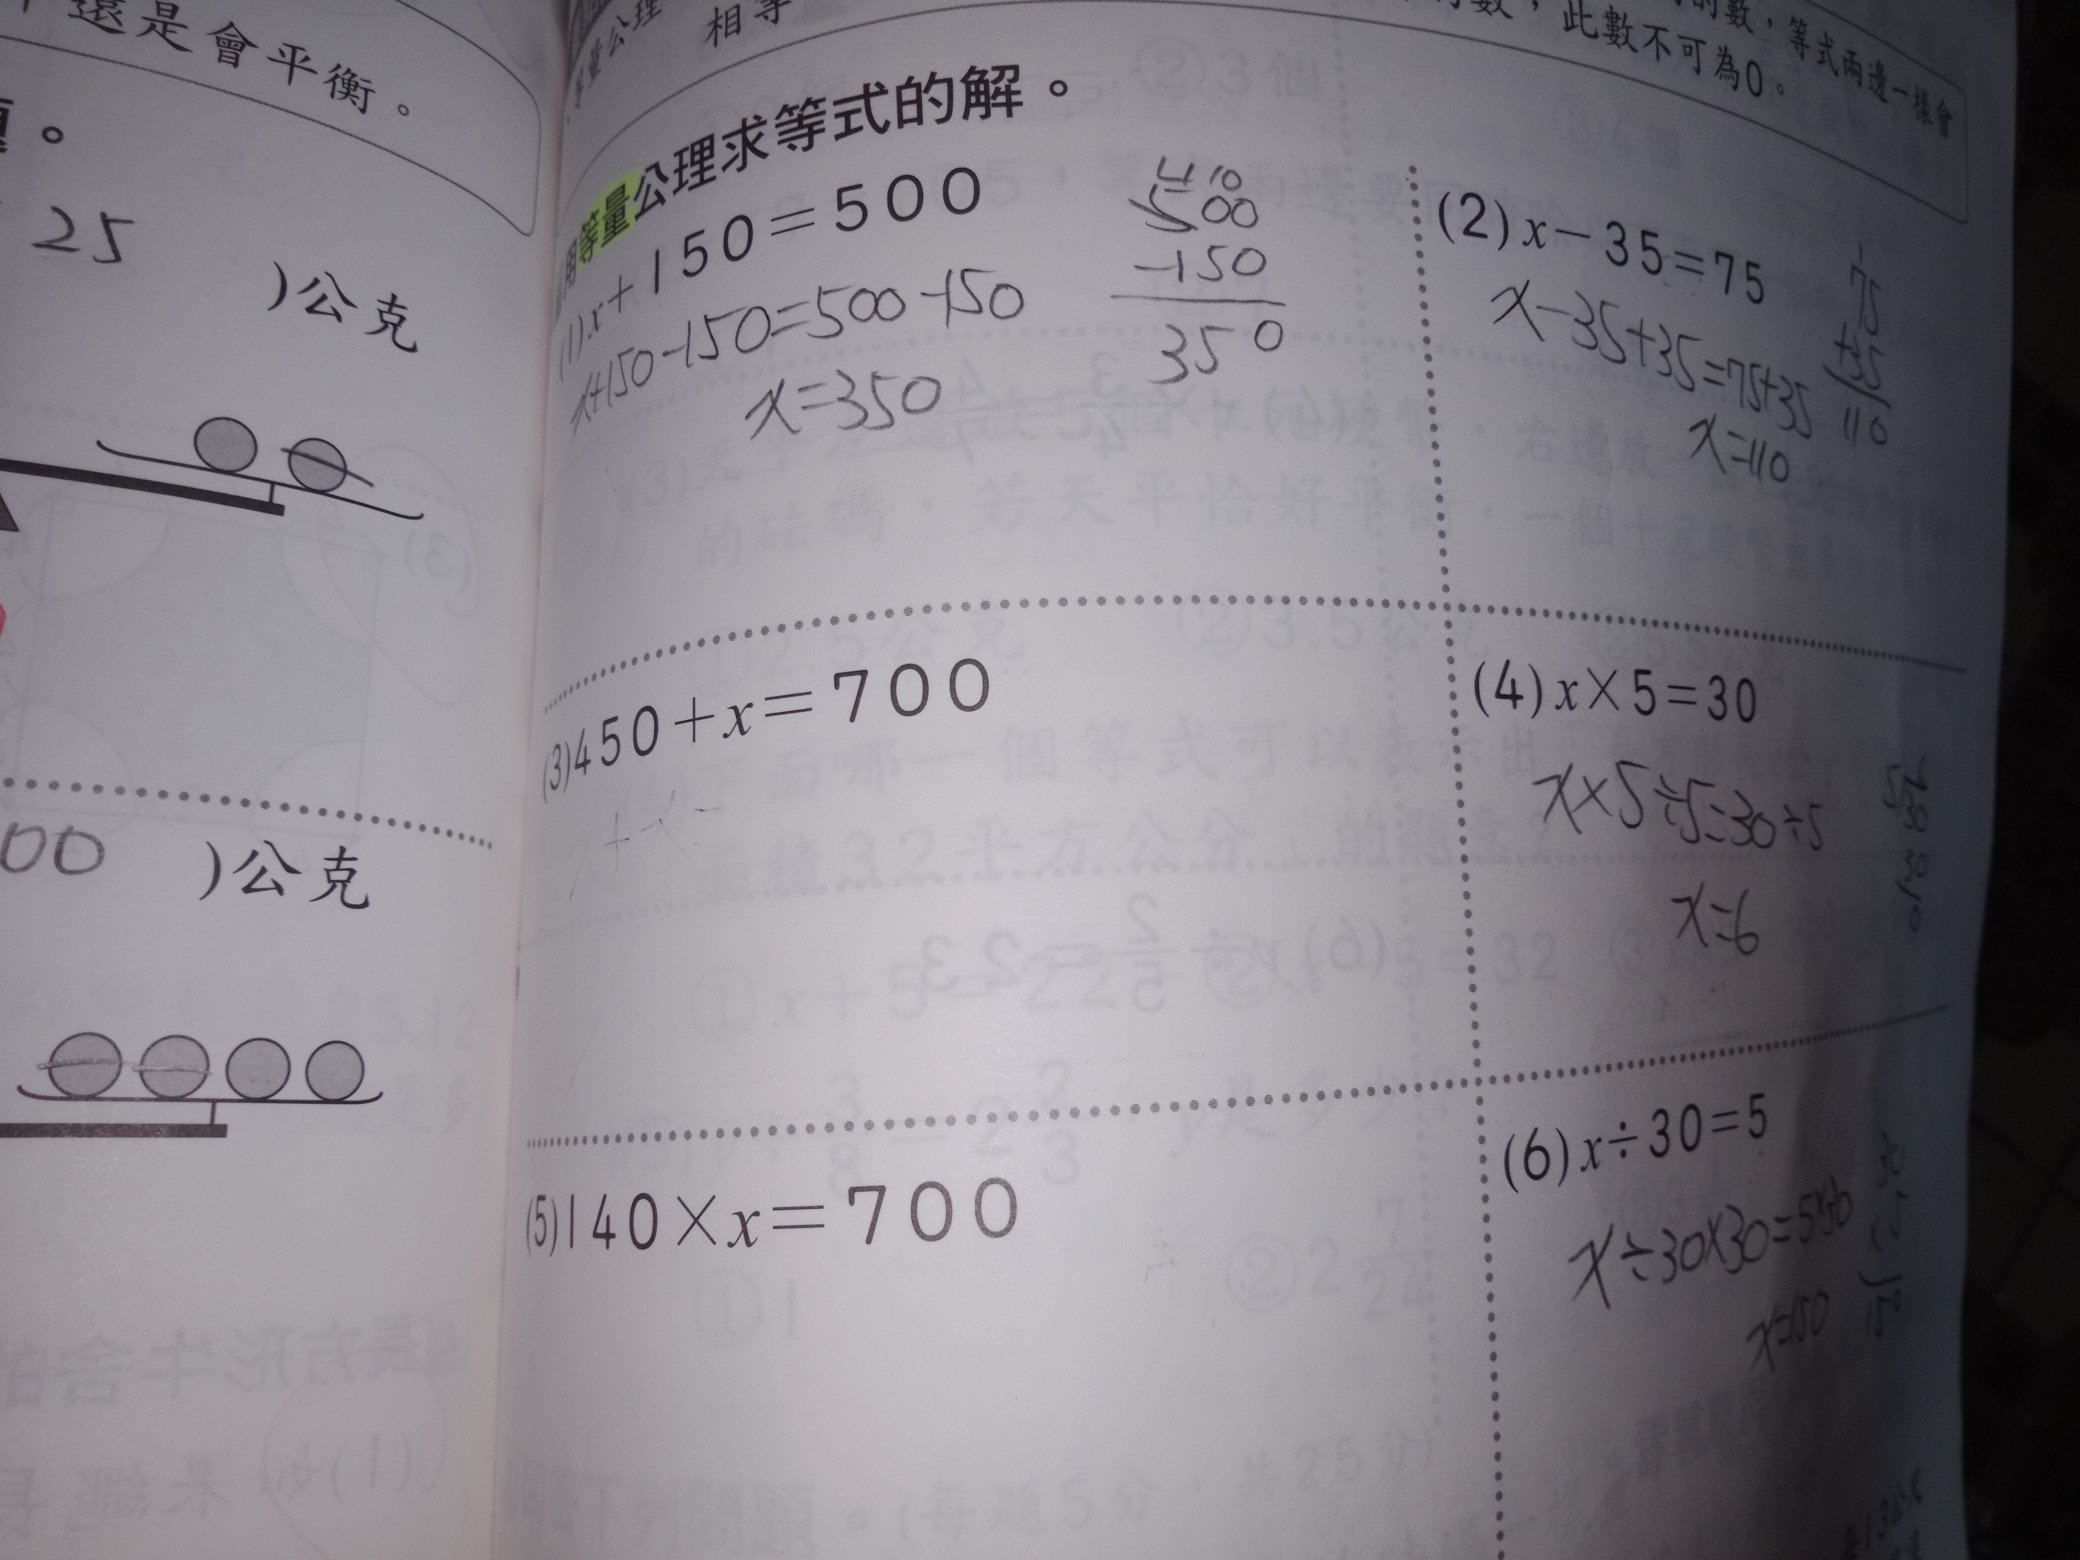 還是會平衡。
。
25 )公克
00 )公克
等量公理 相等
的數,等式兩邊一樣會
此數不可為0。
用等量公理求等式的解。
(1)x+150=500
x+150-150=500-150
x=350
4 10
500
-150
350
(2)x-35=75
x-35+35=75+35
x=110
1
75
+35
110
(3)450+x=700
+x=
(4)x×5=30
x×5÷5=30÷5
x=6
(5)140×x=700
(6)x÷30=5
x÷30×30=5×30
x=150